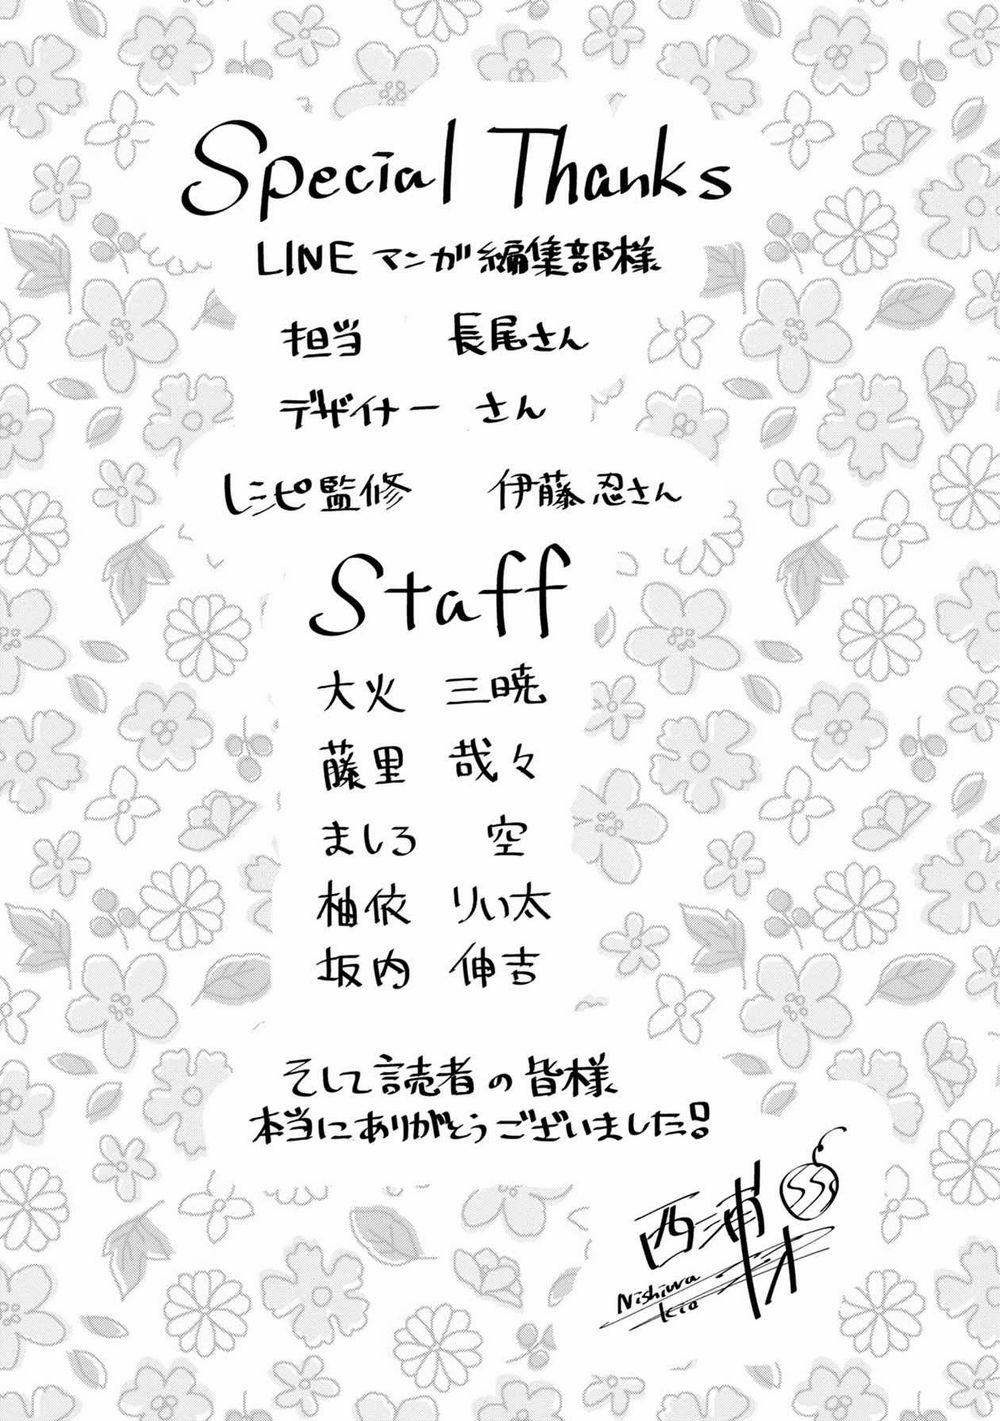 Special Thanks
LINE マンガ編集部様
担当 長尾さん
デザイナー さん
レシピ監修 伊藤忍さん
Staff
大火 三暁
藤里 哉々
ましろ 空
柚依 りい太
坂内 伸吉
そして読者の皆様
本当にありがとうございました!
西浦キオ
Nishiura
Kio